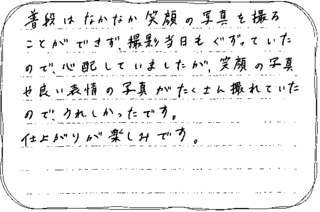 普段はなかなか笑顔の写真を撮る
ことができず、撮影当日もぐずっていた
ので、心配していましたが、笑顔の写真
や良い表情の写真がたくさん撮れていた
ので、うれしかったです。
仕上がりが楽しみです。